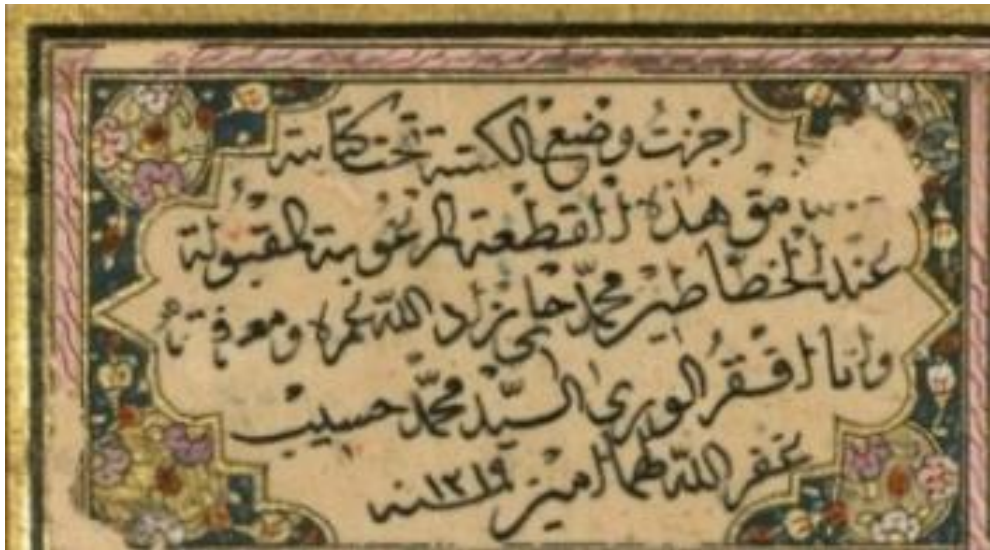 اجزتُ وضع الكتبة تحت كتابة
هذه القطعة المرغوبة المقبولة
عند الخطاطين محمّد زاد الله عمره ومعرفته
وانا افقرُ الورى السيّد محمّد حسيب
غفر الله لهما امين سنه